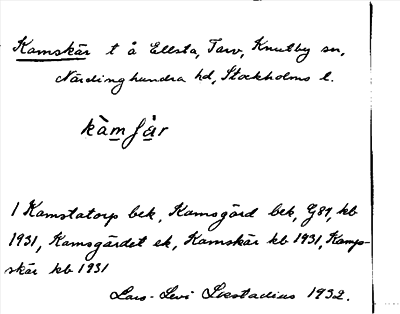 Kamskär t å Ellsta, Tarv, Knutby sn,
Närdinghundra hd, Stockholms l.
kàmʃàr
1 Kamstatorp bek, Kamsgärd bek, G89, kb
1931, Kamsgärdet ek, Kamskär kb 1931, Kamp-
skär kb 1931
Lars-Levi Læstadius 1932.